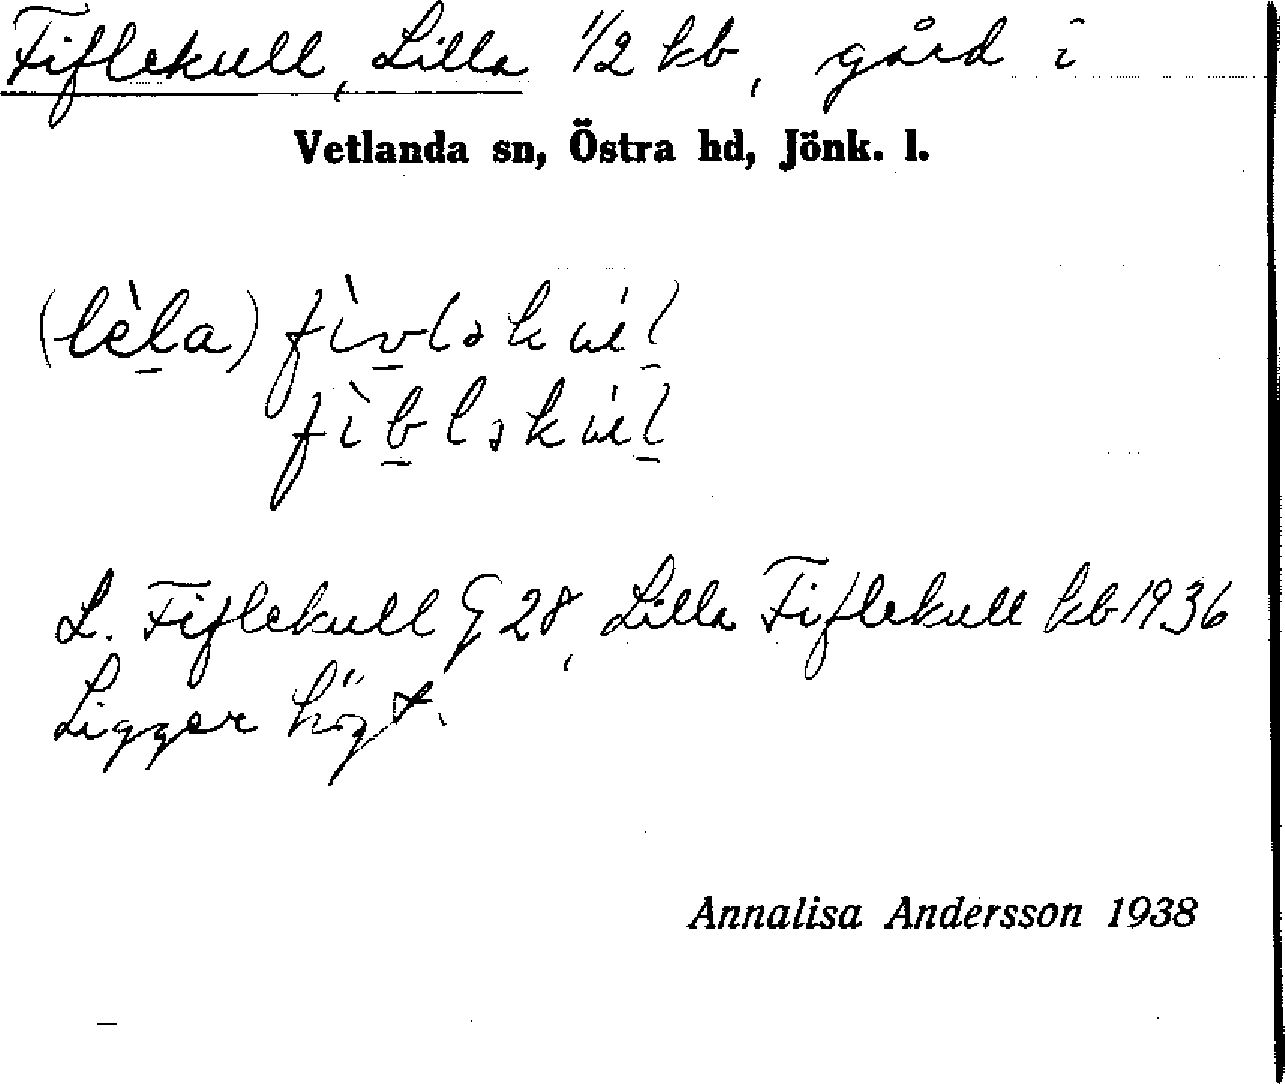 Fiflekull, Lilla 1/2 kb, gård i
Vetlanda sn, Östra hd, Jönk. l.
(lèla)
L. Fiflekull G 28, Lilla Fiflekull kb 1936
Ligger högt.
Annalisa Andersson 1938